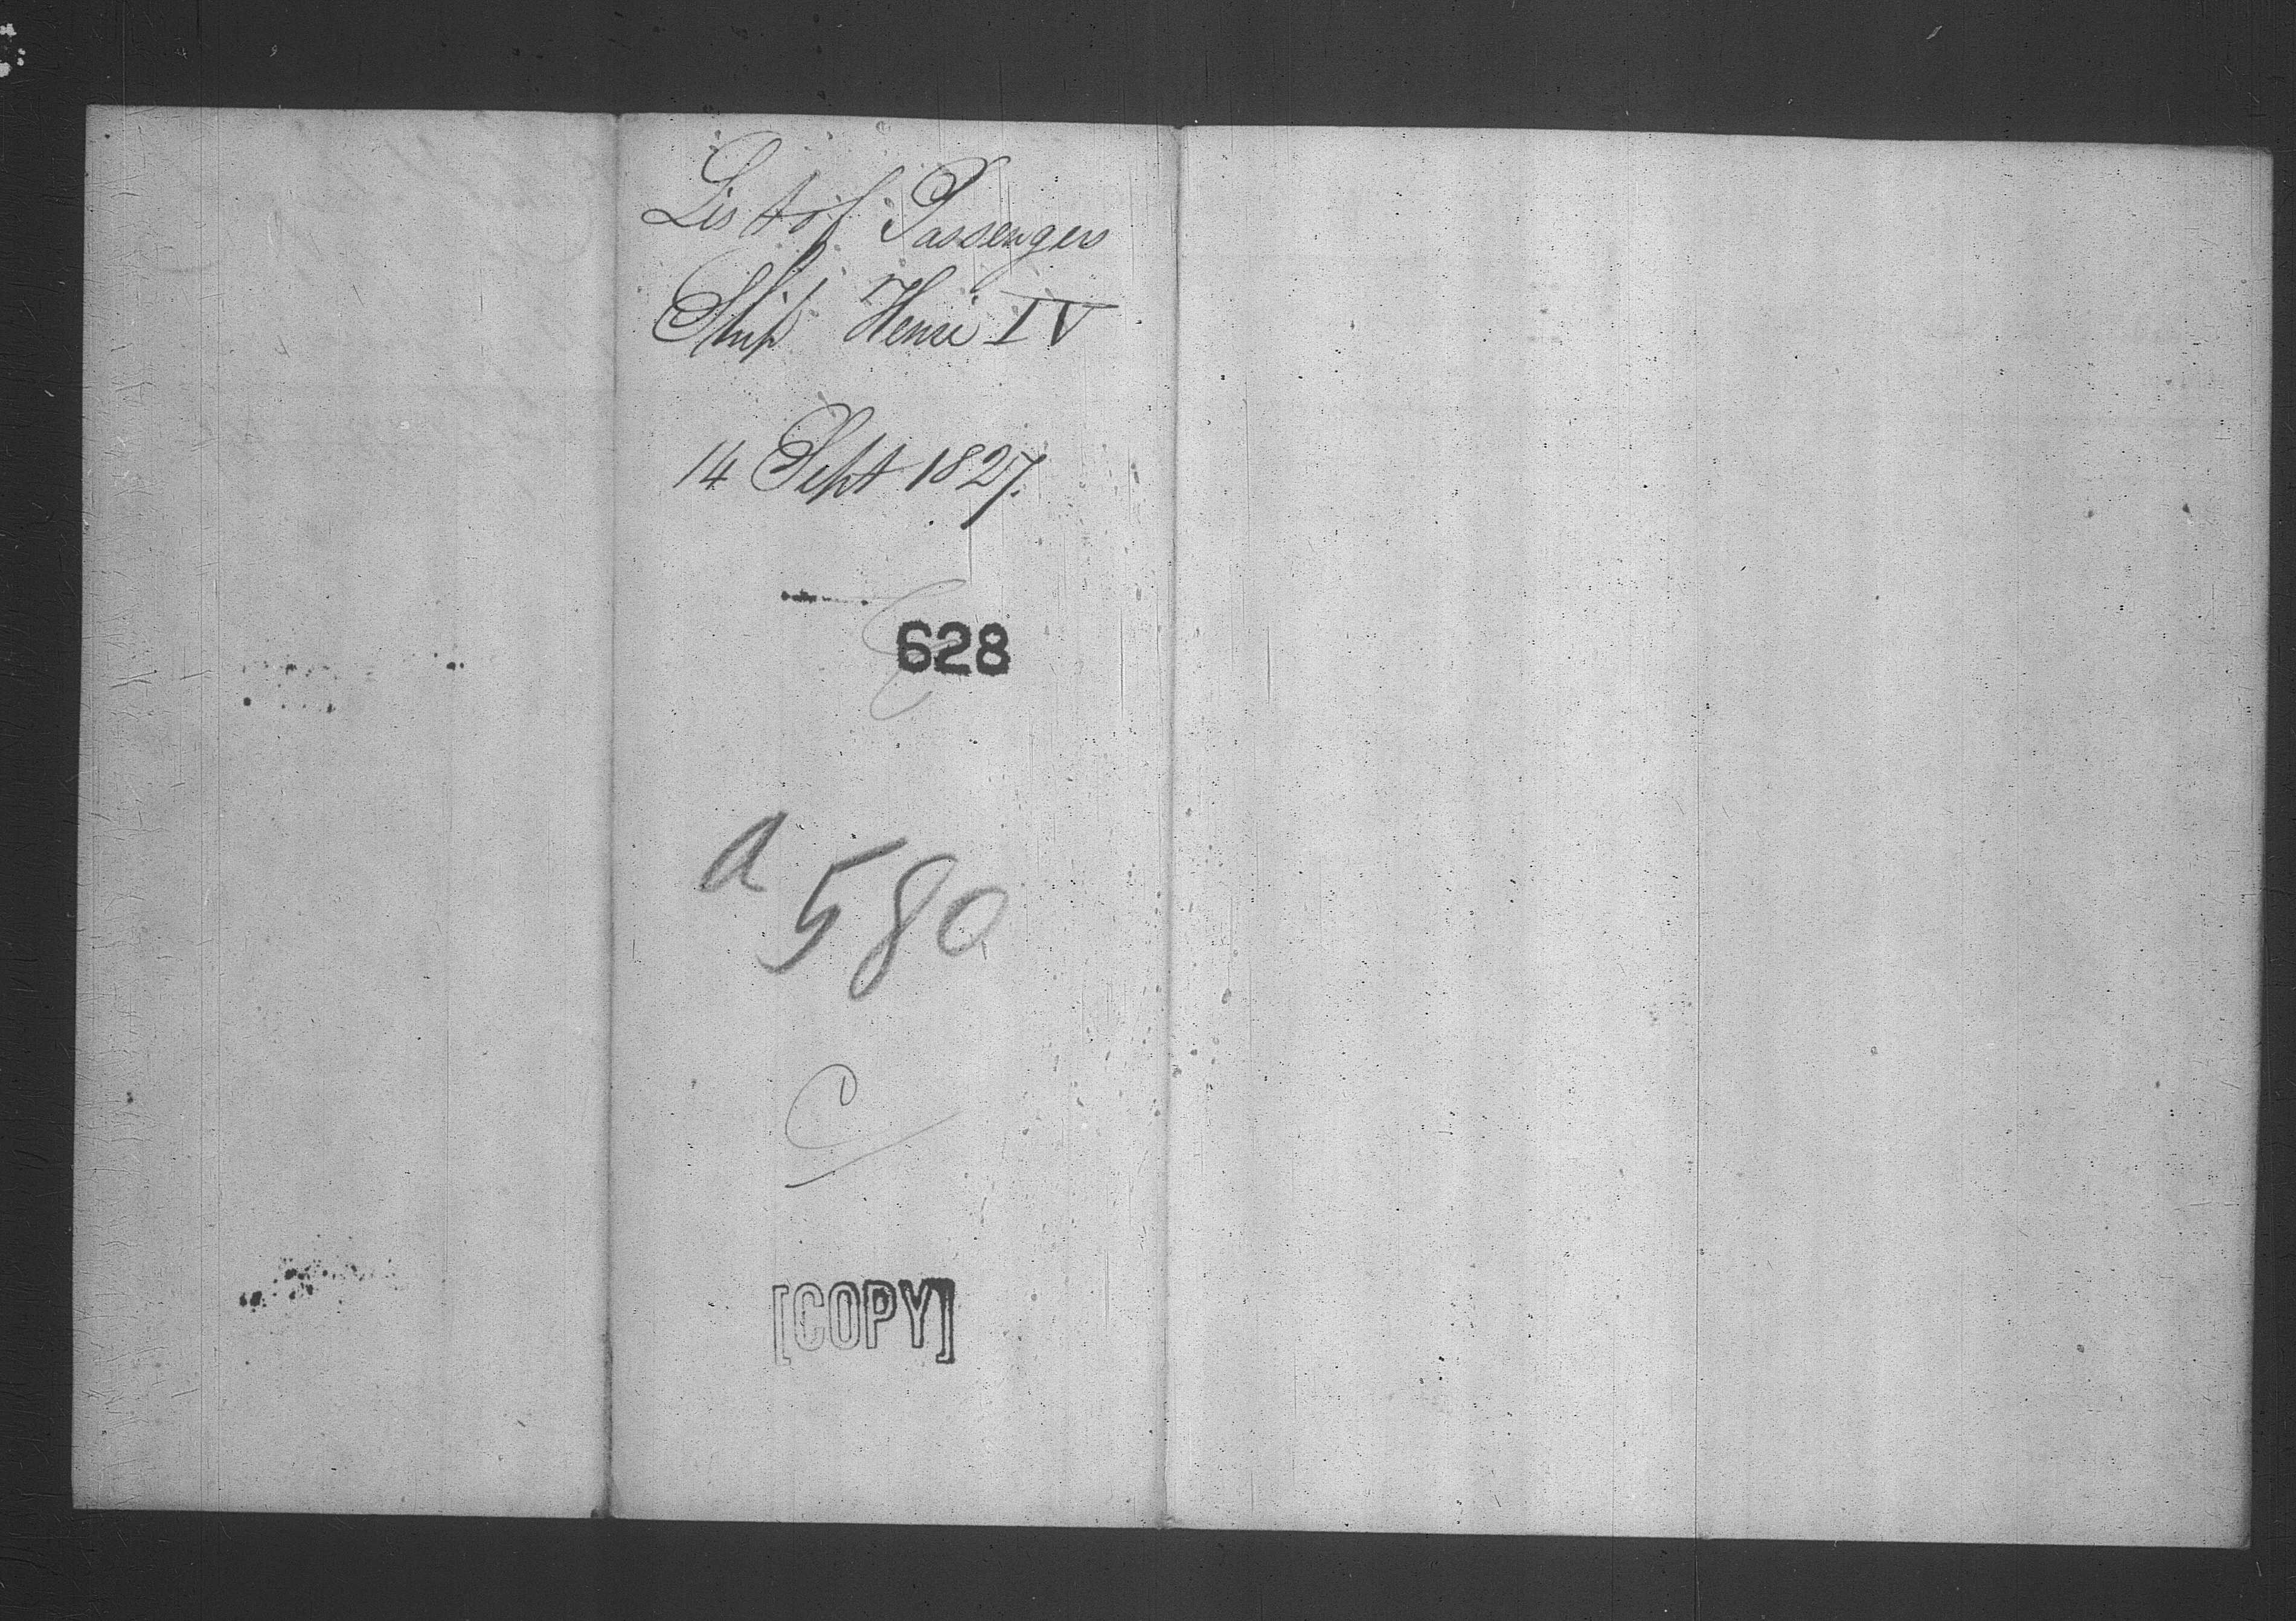 List of Passengers
Ship Henri IV
14 Sept 1827.
628
a
580
C
[COPY]